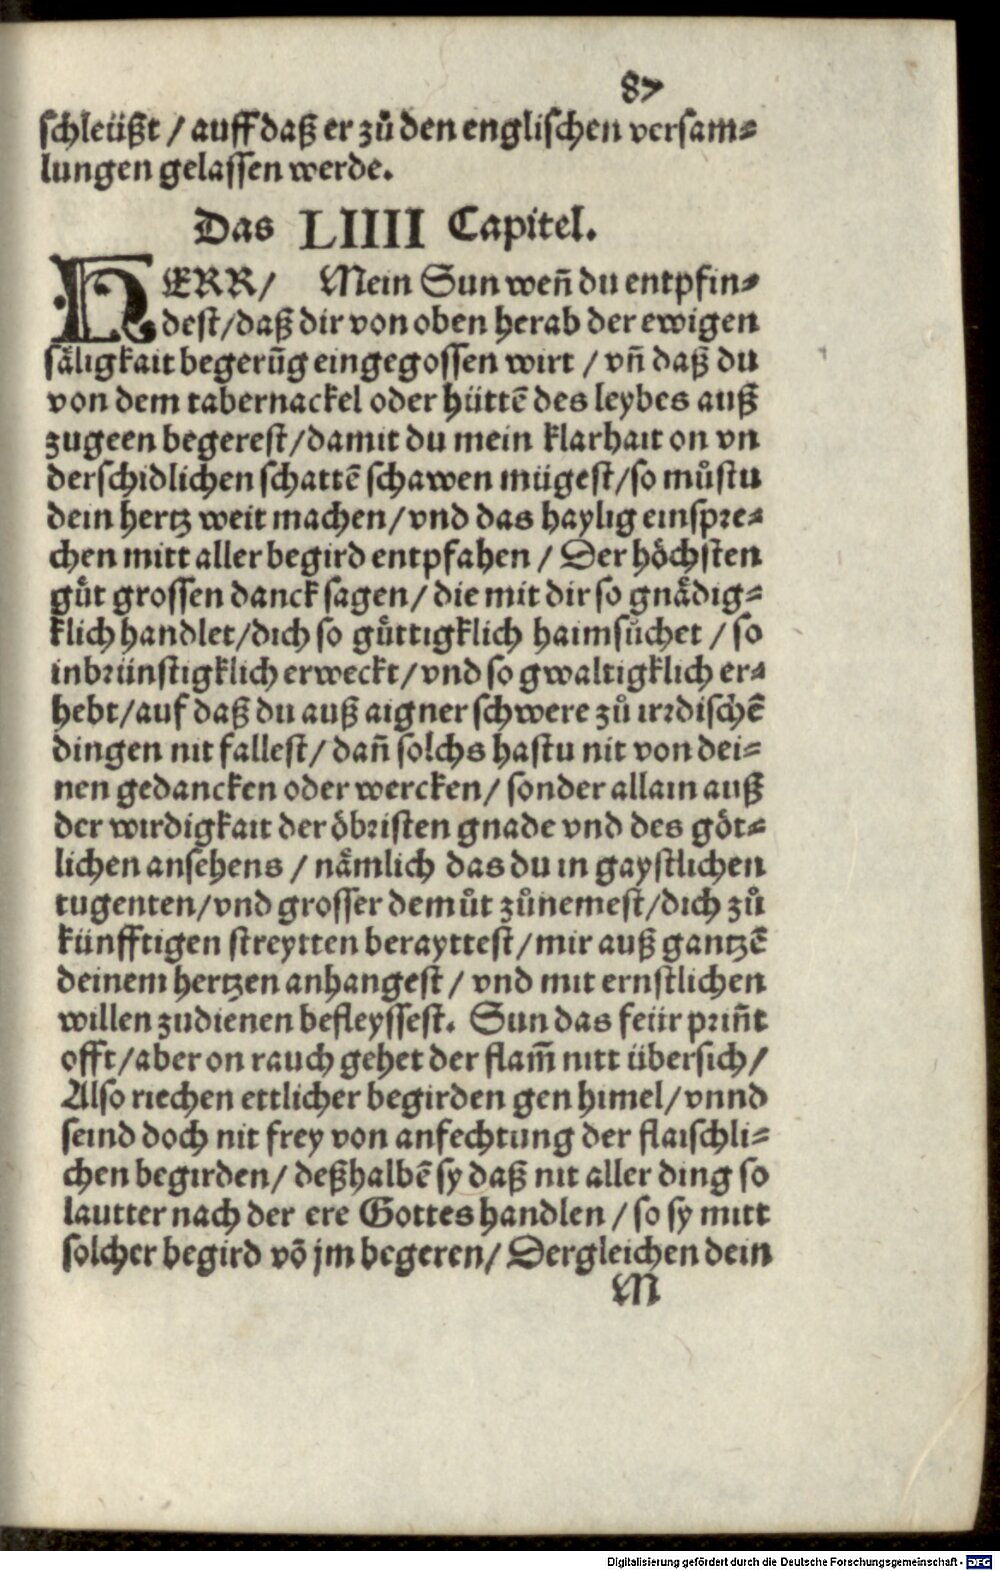 87
schleüßt / auff daß er zů den englischen versam⸗
lungen gelassen werde.
Das LIIII Capitel.
HERR/ Mein Sun weñ du entpfin⸗
dest/daß dir von oben herab der ewigen
säligkait begerũg eingegossen wirt / vñ daß du
von dem tabernackel oder hüttē des leybes auß
zugeen begerest/damit du mein klarhait on vn
derschidlichen schattē schawen mügest/so můstu
dein hertz weit machen/vnd das haylig einspre⸗
chen mitt aller begird entpfahen / Der höchsten
gůt grossen danck sagen/ die mit dir so gnädig⸗
klich handlet/dich so gůttigklich haimsůchet / so
inbrünstigklich erweckt/vnd so gwaltigklich er⸗
hebt/auf daß du auß aigner schwere zů irrdischē
dingen nit fallest/ dañ solchs hastu nit von dei⸗
nen gedancken oder wercken/ sonder allain auß
der wirdigkait der öbristen gnade vnd des göt⸗
lichen ansehens / nämlich das du in gaystlichen
tugenten/vnd grosser demůt zůnemest/dich zů
künfftigen streytten berayttest/mir auß gantzē
deinem hertzen anhangest / vnd mit ernstlichen
willen zudienen befleyssest. Sun das feür priñt
offt/aber on rauch gehet der flam̃ nitt übersich/
Also riechen ettlicher begirden gen himel/vnnd
seind doch nit frey von anfechtung der flaischli⸗
chen begirden/ deßhalbē sy daß nit aller ding so
lautter nach der ere Gottes handlen / so sy mitt
solcher begird võ jm begeren/ Dergleichen dein
M
Digitalisierung gefördert durch die Deutsche Forschungsgemeinschaft - DFG